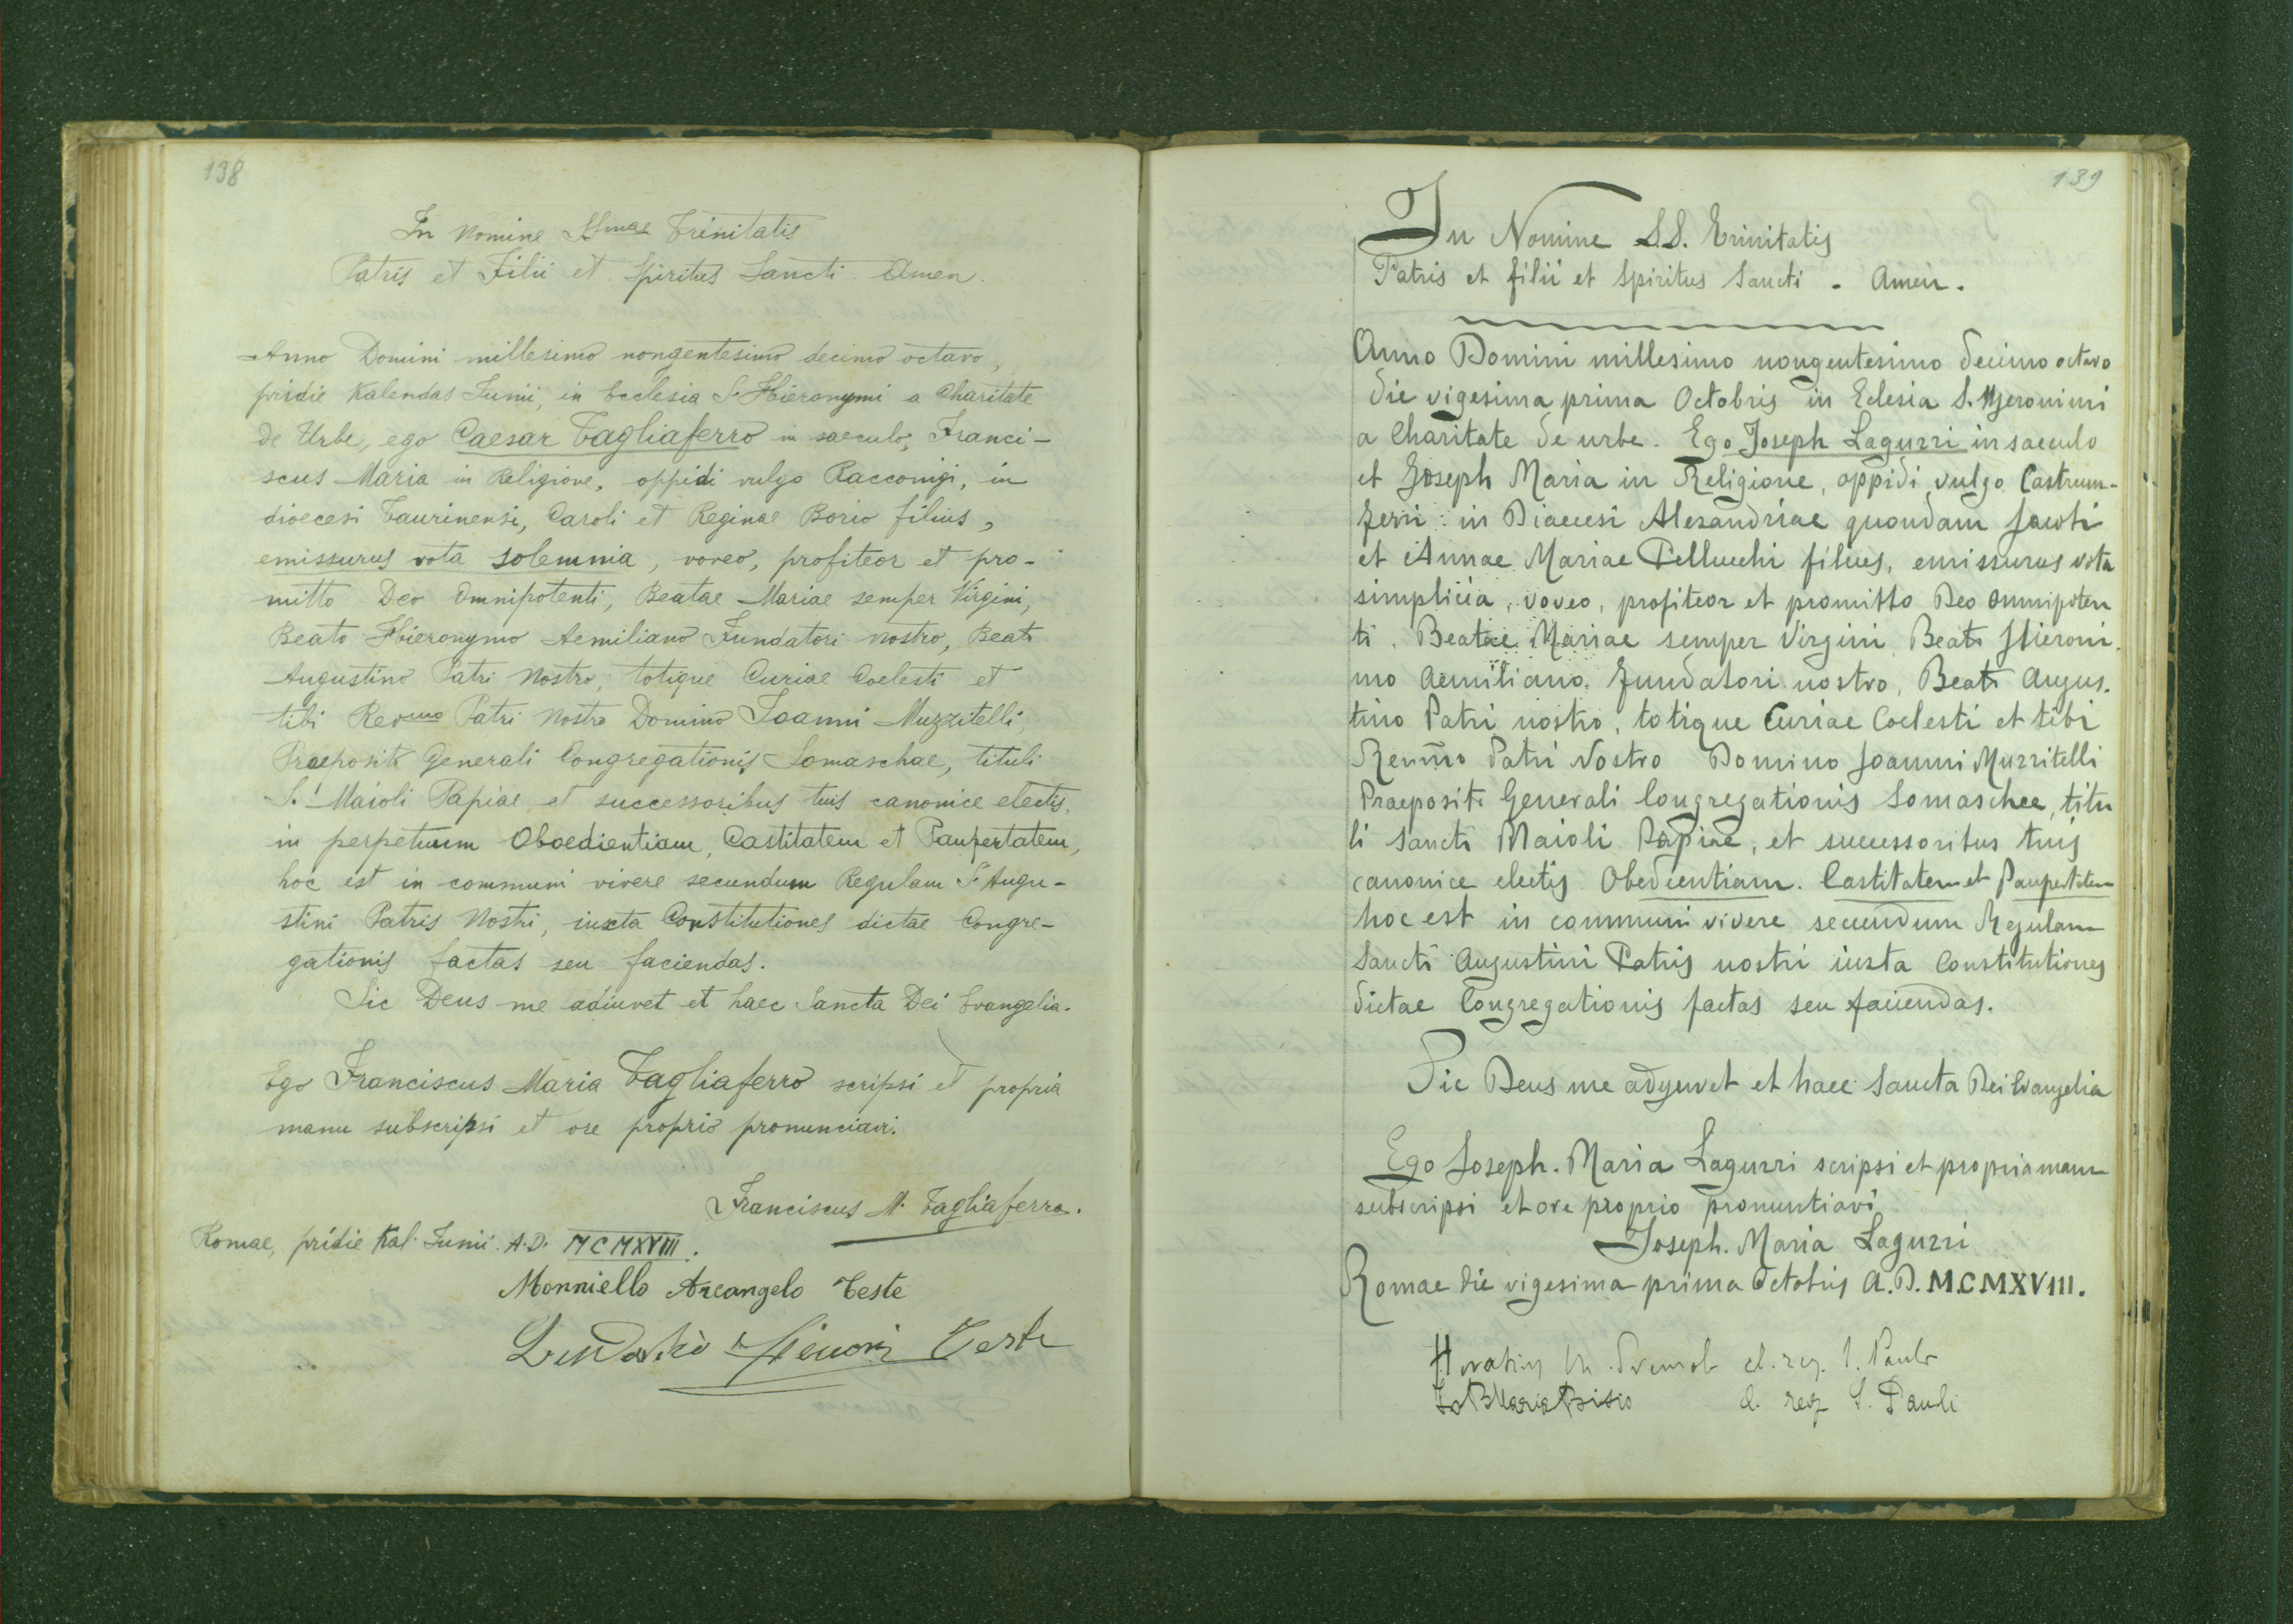 138
In nomine SSmae Trinitatis
Patris et Filii et Spiritus Sancti Amen.
Anno Domini millesimo nongentesimo decimo octavo,
pridie Kalendas Iunii, in Ecclesia S. Hieronymi a Charitate
de Urbe, ego Caesar Tagliaferro in saeculo, Franci-
scus Maria in Religione, oppidi vulgo Racconigi, in
dioecesi Taurinensi, Caroli et Reginae Borio filius,
emissurus vota solemnia, voveo, profiteor et pro-
mitto Deo Omnipotenti, Beatae Mariae semper Virgini,
Beato Hieronymo Aemiliano Fundatori nostro, Beato
Augustino Patri Nostro, totique Curiae Coelesti et
tibi Revmo Patri Nostro Domino Ioanni Muzzitelli,
Praeposito Generali Congregationis Somaschae, tituli
S. Maioli Papiae et successoribus tuis canonice electis,
in perpetuum Oboedientiam, Castitatem et Paupertatem,
hoc est in communi vivere secundum Regulam S. Augu-
stini Patris Nostri, iuxta Constitutiones dictae Congre-
gationis factas seu faciendas.
Sic Deus me adiuvet et haec Sancta Dei Evangelia.
Ego Franciscus Maria Tagliaferro scripsi et propria
manu subscripsi et ore proprio pronunciavi.
Franciscus M. Tagliaferro.
Romae, pridie Kal. Iunii A.D. MCMXVIII.
Monniello Arcangelo Teste
Teste
139
In Nomine S.S. Trinitatis
Patris et filii et Spiritus Sancti . Amen.
Anno Domini millesimo nongentesimo decimo octavo
die vigesima prima Octobris in Eclesia S. Hjeronimi
a Charitate de urbe. Ego Joseph Laguzzi in saeculo
et Joseph Maria in Religione, oppidi vulgo Castrum-
ferri in Diaecesi Alexandriae quondam Jacobi
et Annae Mariae Pellucchi filius, emissurus vota
simplicia, voveo, profiteor et promitto Deo Omnipoten
ti. Beatae Mariae semper Virgini, Beato Hieroni.
mo Aemiliano. Fundatori nostro, Beato Augus.
tino Patri nostro, totique Curiae Coelesti et tibi
Revmo Patri Nostro Domino Joanni Muzzitelli
Praeposito Generali Congregationis Somaschae, titu
li Sancti Maioli Papiae, et successoribus tuis
canonice electis Obedientiam. Castitatem et Paupertatem
hoc est in communi vivere secundum Regulam
Sancti Augustini Patris nostri iuxta Constitutiones
dictae Congregationis factas seu faciendas.
Sic Deus me adyuvet et haec Sancta Dei Evangelia
Ego Joseph. Maria Laguzzi scripsi et propria manu
subscripsi et ore proprio pronuntiavi
Joseph. Maria Laguzzi
Romae die vigesima prima Octobris A.D. M.C MXVIII.
cl. reg. S. Pauli
cl. reg S. Pauli